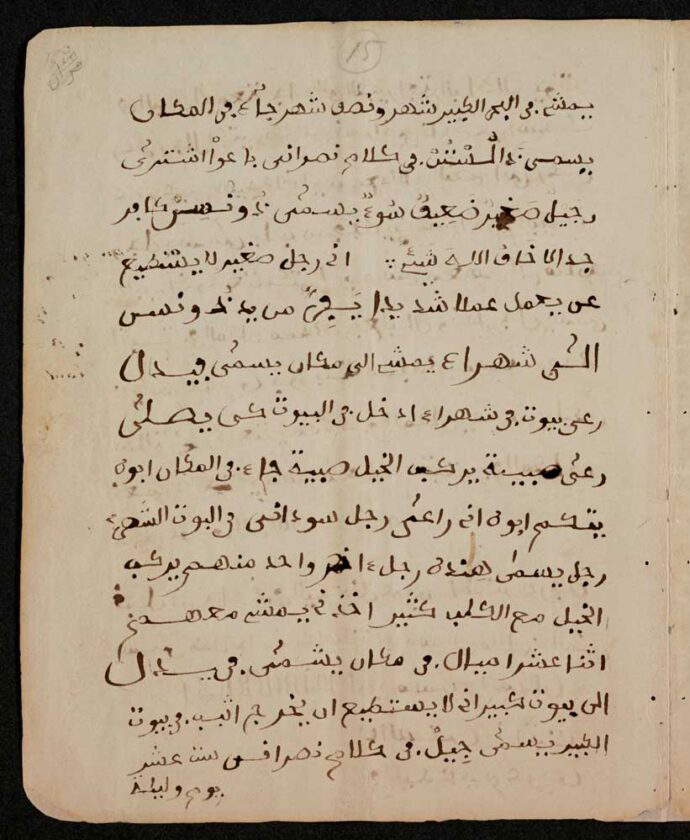 15
يمشي في البحر الكبير شهر ونصف شهر جاء في المكان
يسمى في كلام نصراني باعوا اشترى
رجيل صغير ضعيف سوء يسمى كافر
جدا لا خاف الله شيء اني رجل صغير لا يستطيع
عن يعمل عملا شديدا يفر من يد
الى شهرا يمشي الى مكان يسمى فيدل
رعى بيوت في شهراء ادخل في البيوت كي يصلى
رعى صبية يركب الخيل صبية جاء في المكان ابوه
يتكلم ابوه انه راعى رجل سوداني في البوت
رجل يسمى هنده رجل اخر واحد منهم يركب
الخيل مع الكلب كثير اخذني يمشي معهم
اثنا عشرا ميال في مكان يسمى في يدل
الى بيوت كبير اني لا يستطيع ان يخرج اثبب في بيوت
الكبير يسمى جيل في كلام نصراني ست عشر
يوم وليلة